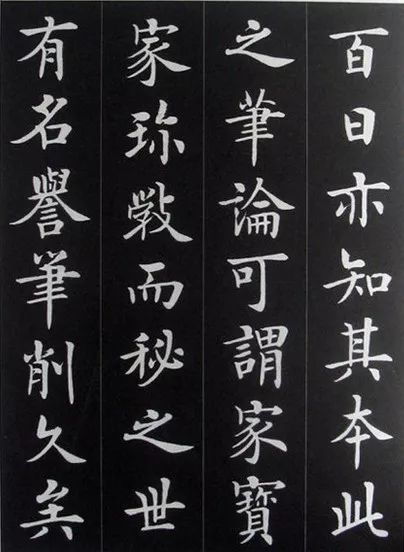 百日亦知其本此
之筆論可謂家寶
家珎斅而秘之世
有名譽筆削久矣